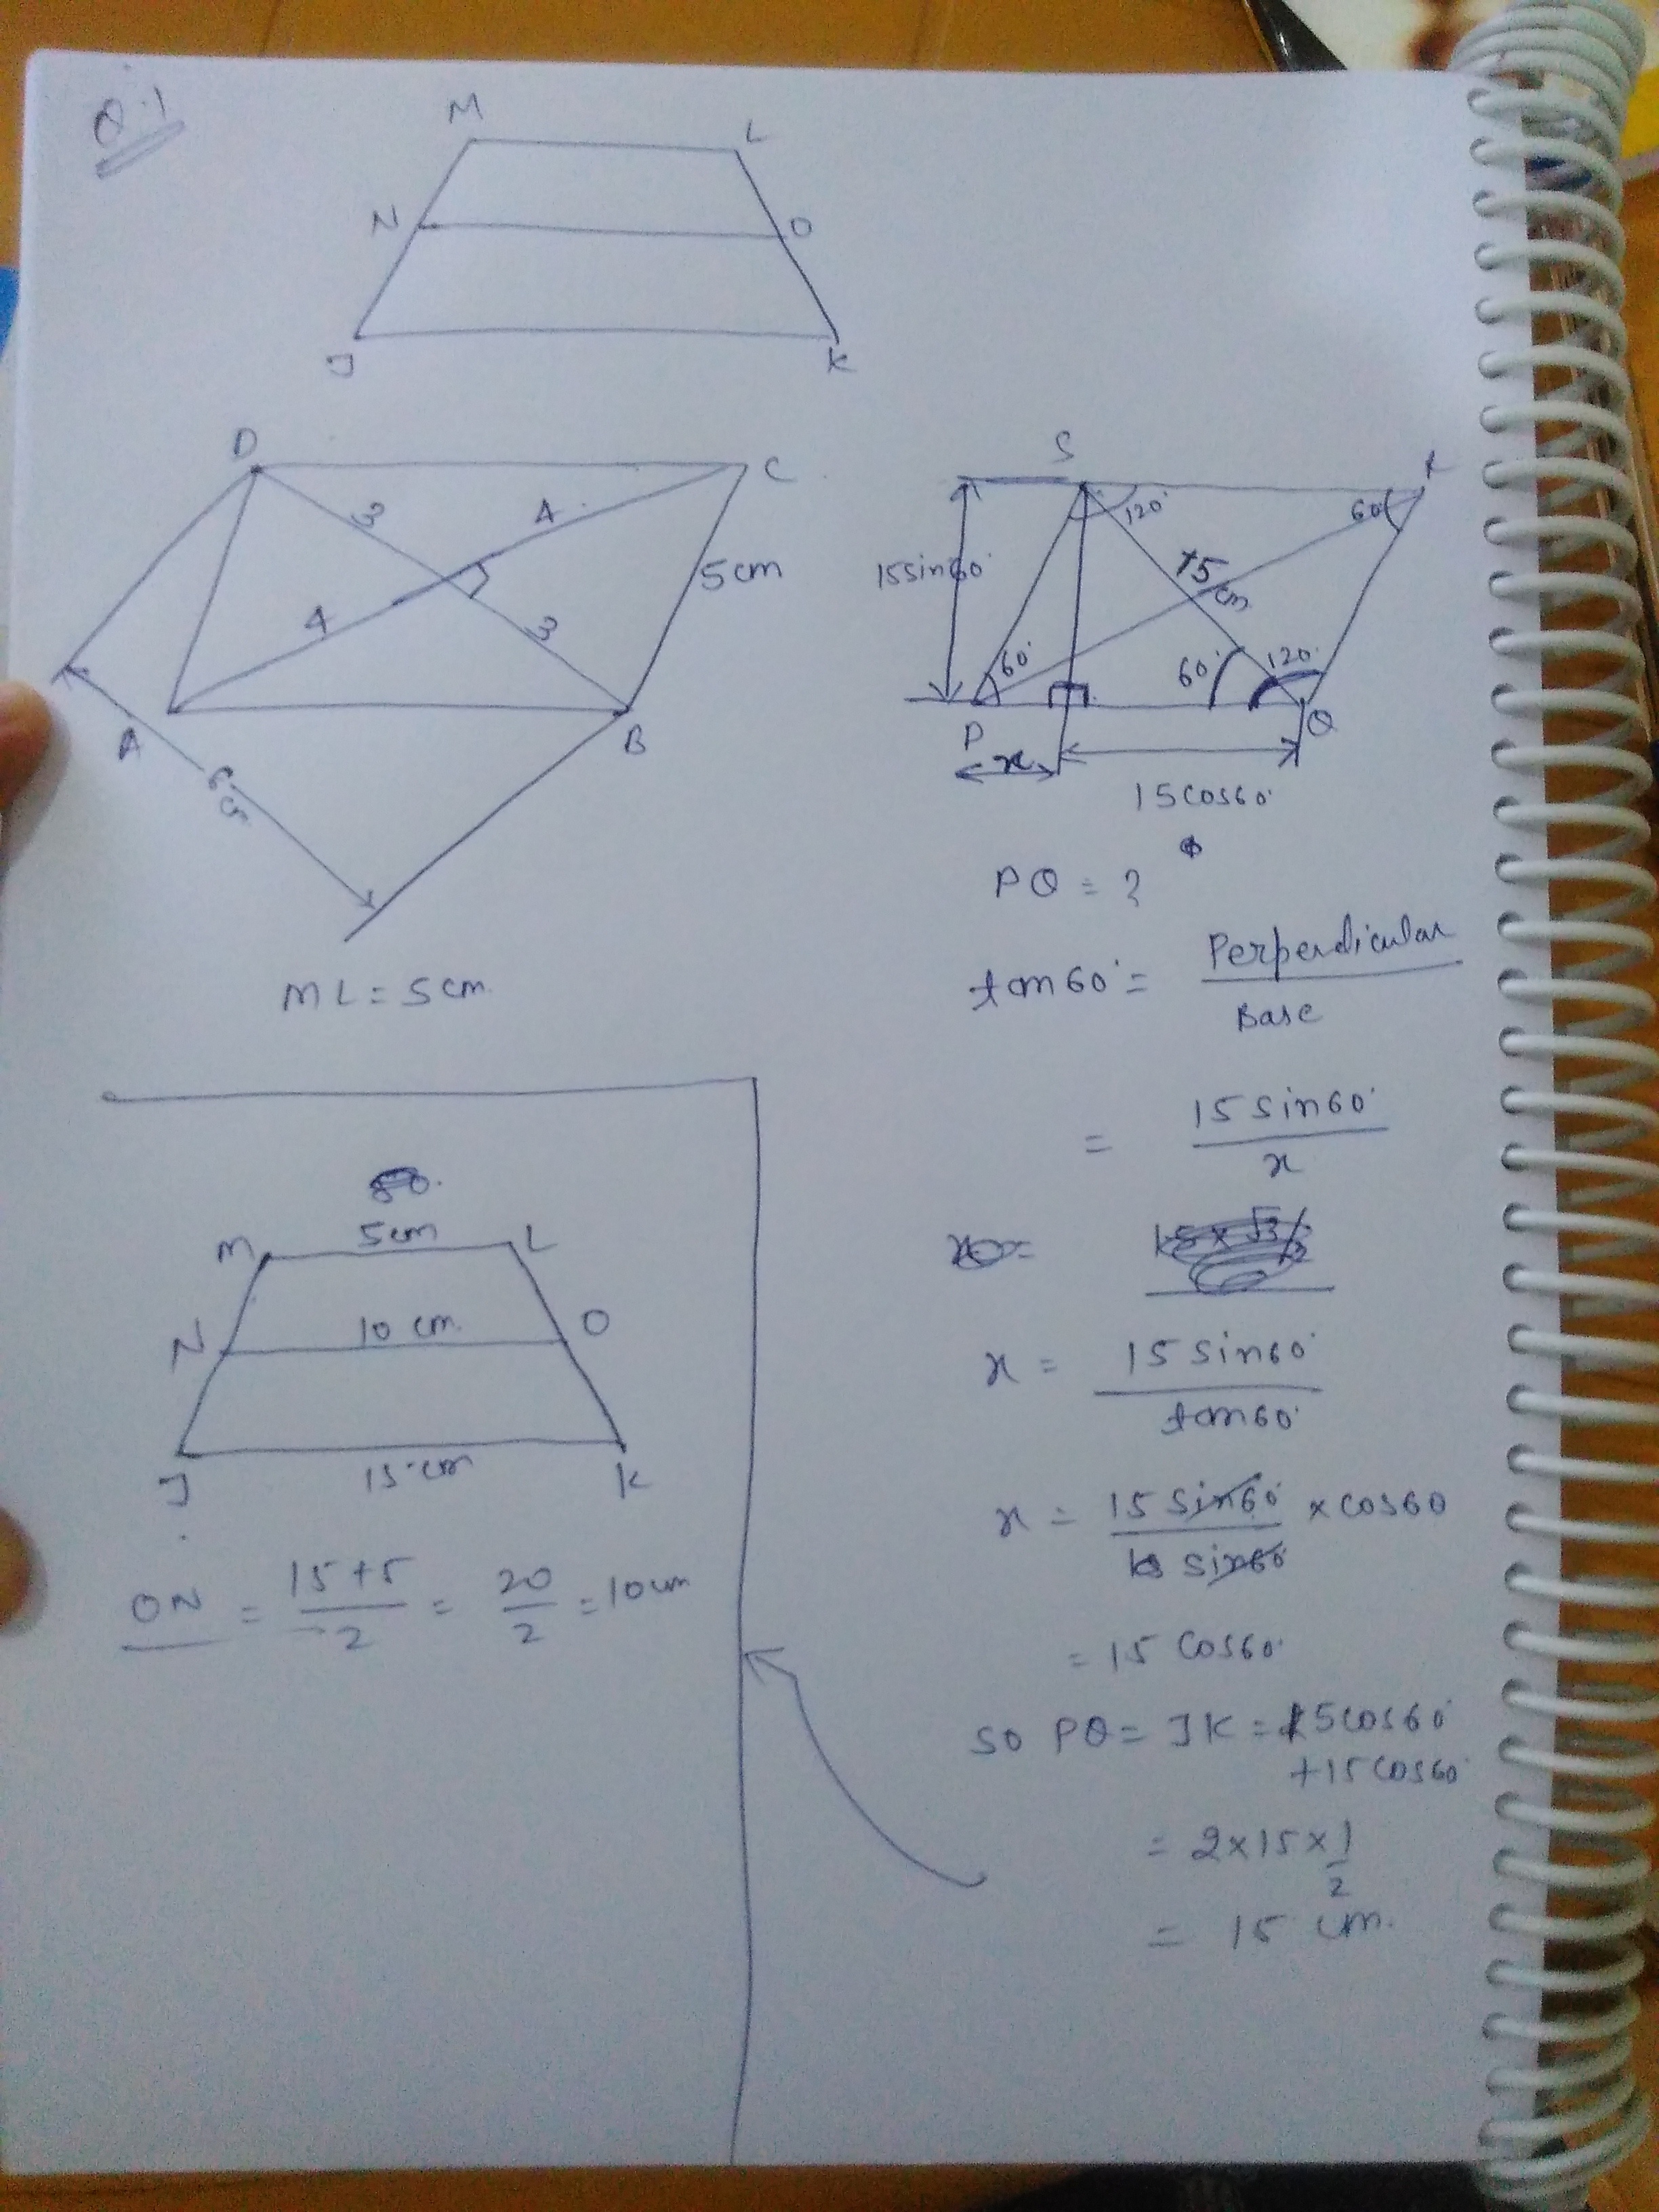 Q.1
M
L
N
O
J
K
D
C
3
4
5cm
4
3
A
B
6 cm
ML = 5cm
S
R
120°
60°
15sin60°
15
cm
60°
60°
120°
P
Q
x
15cos60°
PQ = ?
tan60° = Perpendicular
Base
= 15 sin60°
x
x = 15 sin60°
tan60°
x = 15 sin60° × cos60
sin60°
= 15 cos60°
so PQ = JK = 15cos60°
+15cos60°
= 2×15×1
2
= 15 cm.
5cm
M
L
10 cm
N
O
15cm
J
K
ON = 15+5 = 20 = 10cm
2 2